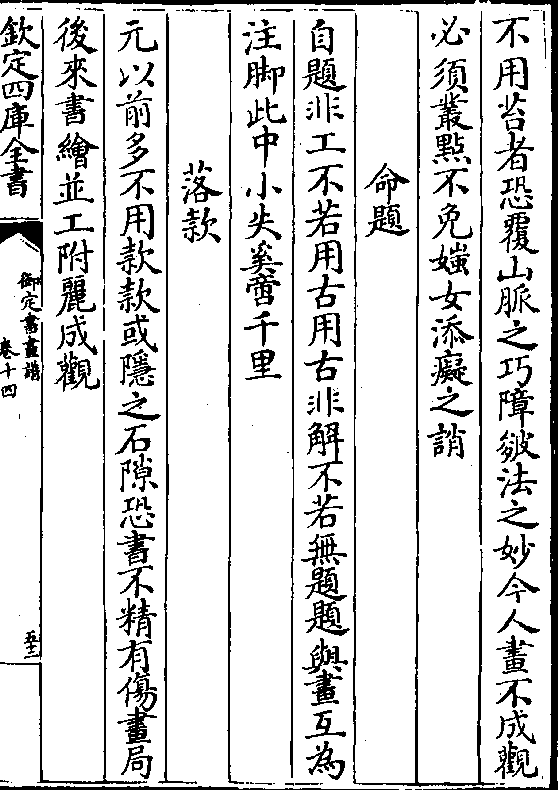 不用苔者恐覆山脈之巧障皴法之妙今人畫不成觀
必須叢㸃不免媸女添癡之誚
命題
自題非工不若用古用古非解不若無題題與畫互為
注脚此中小失奚啻千里
落款
元以前多不用款款或隱之石隙恐書不精有傷畫局
後來書繪並工附麗成觀
欽定四庫全書
御定書畫譜
卷十四
五十三